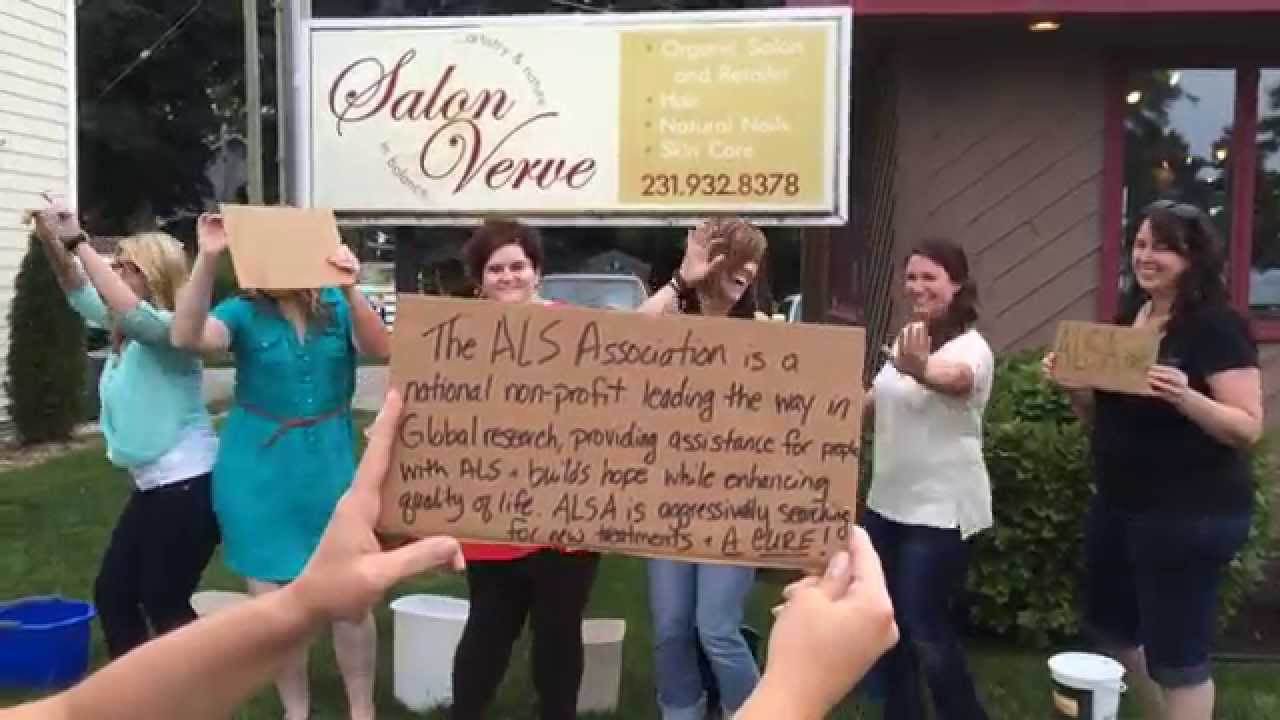 ...artistry & nature
Salon
Verve
in balance...
• Organic Salon
and Retailer
• Hair
• Natural Nails
• Skin Care
231.932.8378
The ALS Association is a
national non-profit leading the way in
Global research, providing assistance for people
with ALS + builds hope while enhancing
quality of life. ALSA is aggressively searching
for new treatments + A CURE!
ALSA